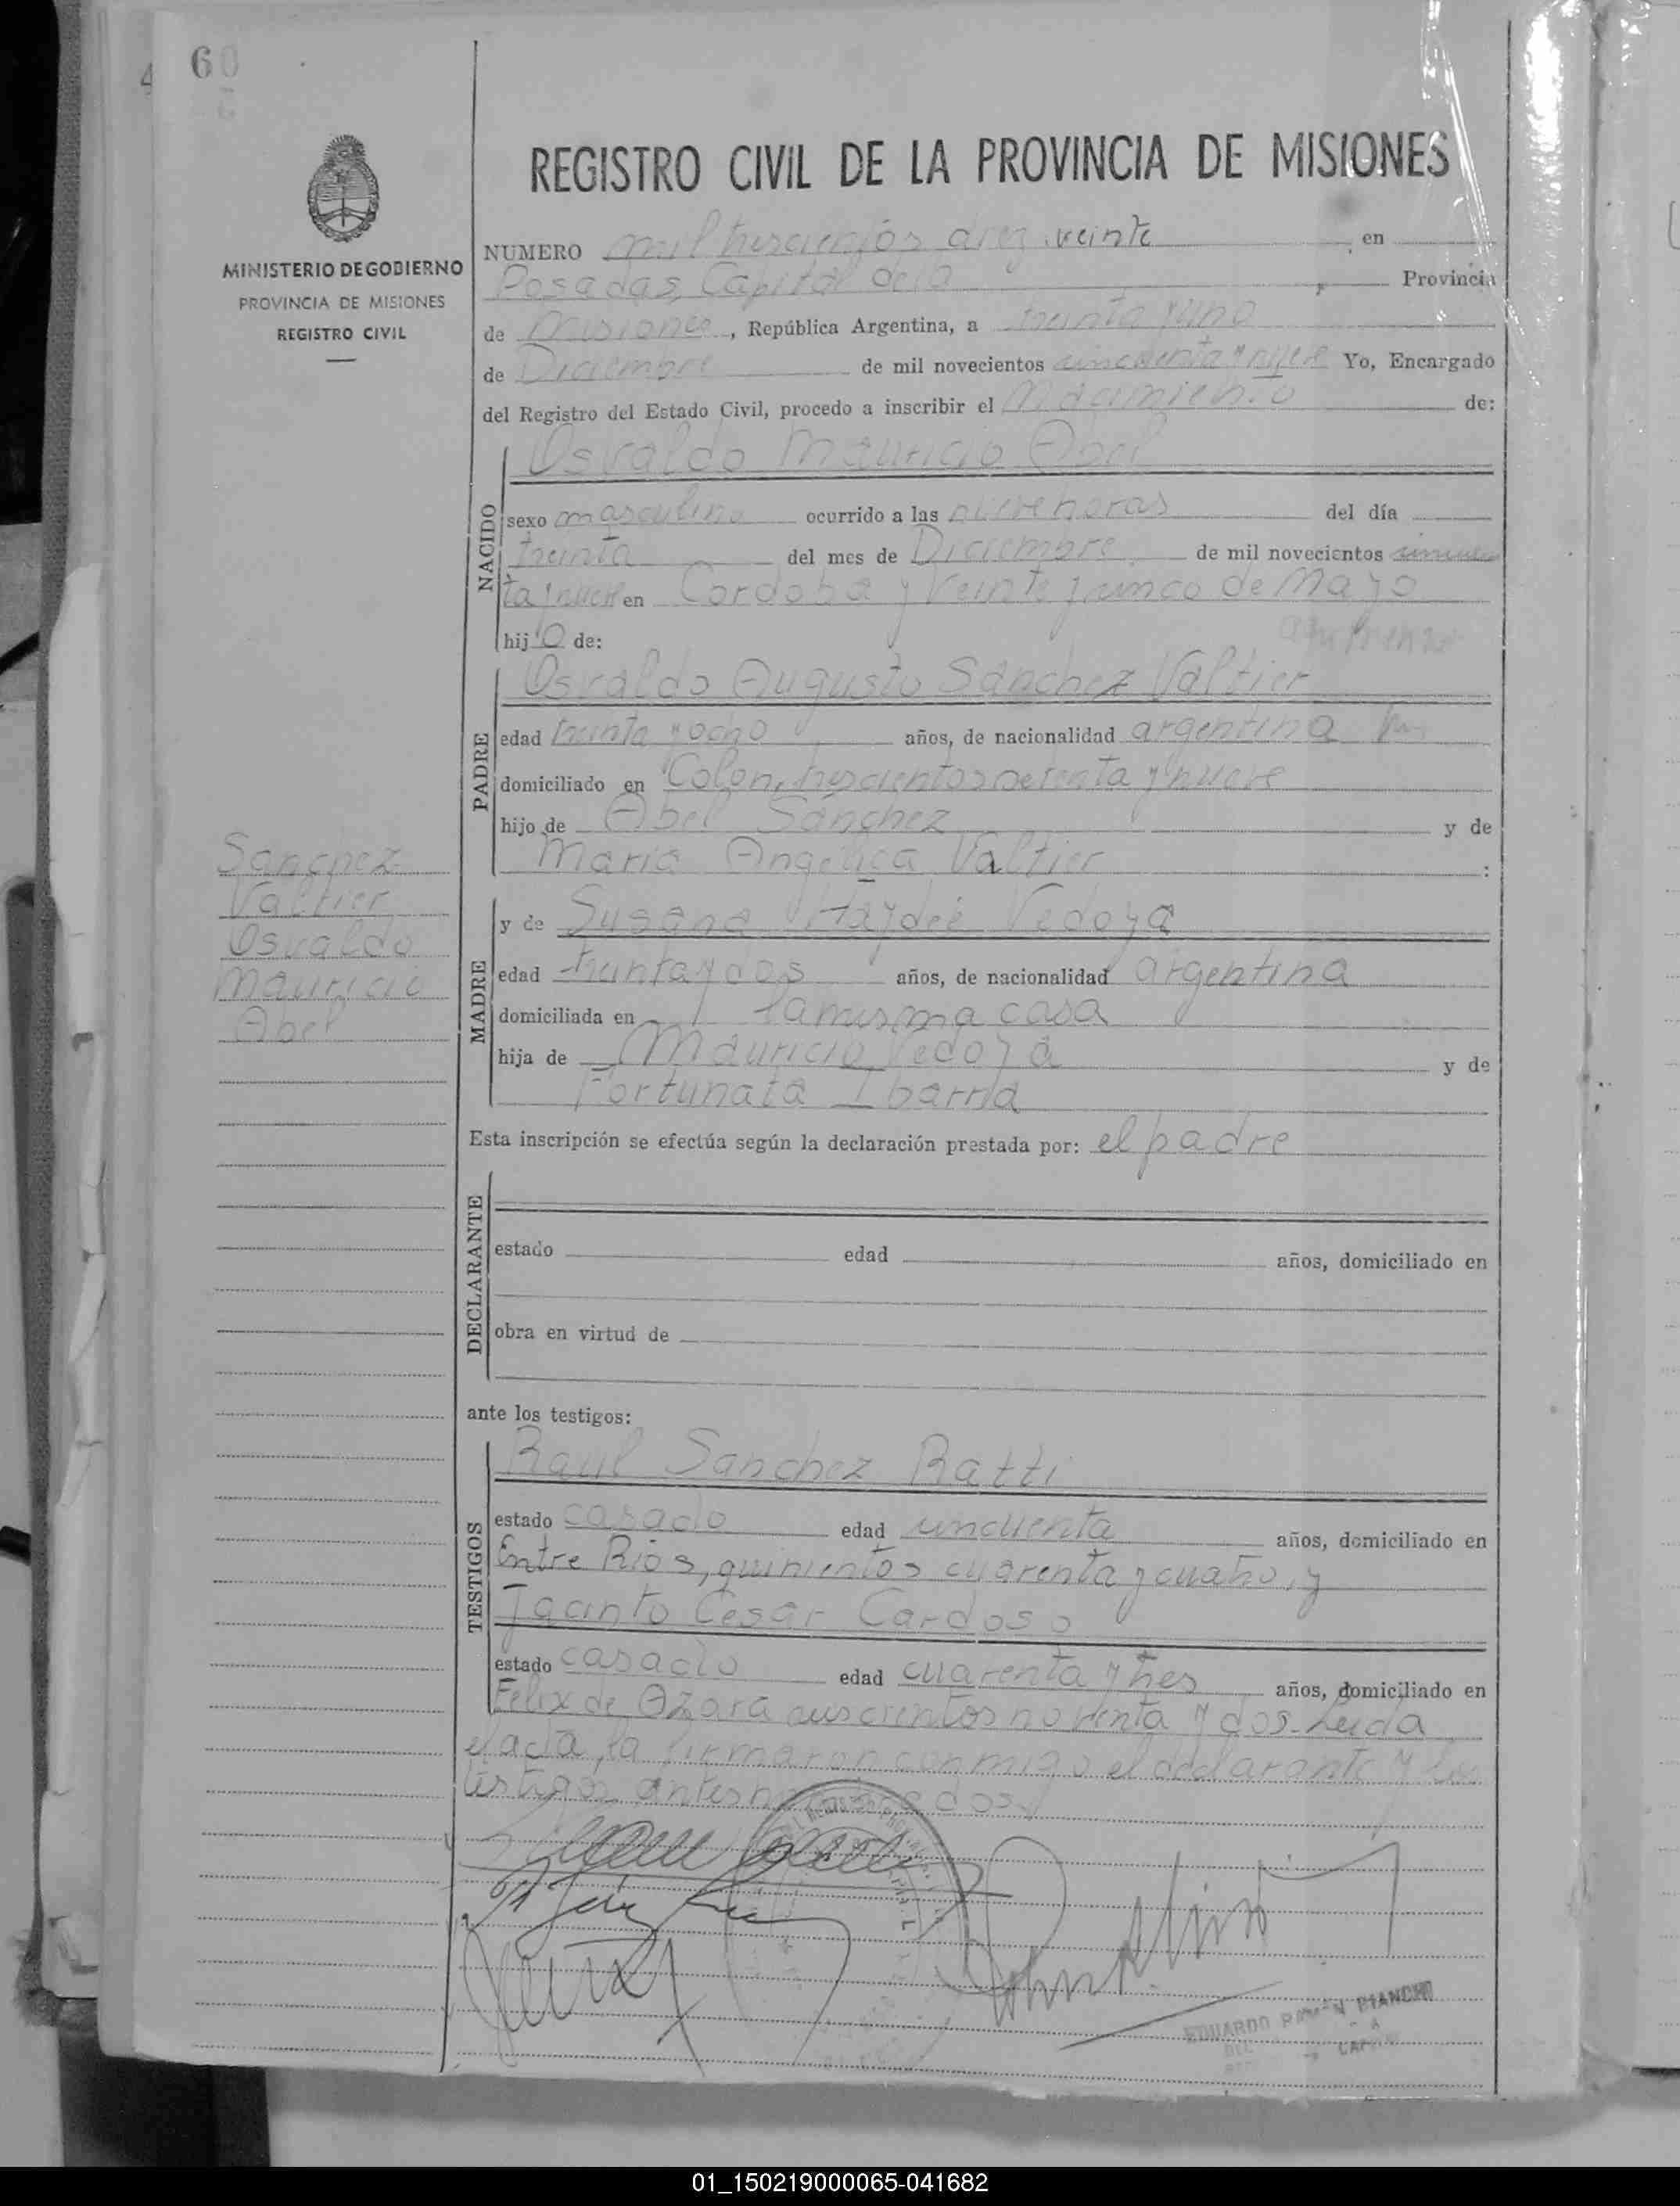 60
REGISTRO CIVIL DE LA PROVINCIA DE MISIONES
MINISTERIO DE GOBIERNO
PROVINCIA DE MISIONES
REGISTRO CIVIL
NUMERO mil trescientos diez veinte, en
Posadas, Capital de la Provincia
de Misiones, República Argentina, a treinta y uno
de Diciembre de mil novecientos cincuenta y nueve Yo, Encargado
del Registro del Estado Civil, procedo a inscribir el nacimiento de:
NACIDO
Osvaldo Mauricio Abel
sexo masculino ocurrido a las nueve horas del día
treinta del mes de Diciembre de mil novecientos cincuen
ta y nueve en Cordoba y Veinte y cinco de Mayo
hijo de:
PADRE
Osvaldo Augusto Sánchez Valtier
edad treinta y ocho años, de nacionalidad argentina
domiciliado en Colon, trescientos setenta y nueve
hijo de Abel Sánchez y de
Maria Angélica Valtier :
Sanchez
Valtier
Osvaldo
Mauricio
Abel
MADRE
y de Susana Haydeé Vedoya
edad treinta y dos años, de nacionalidad argentina
domiciliada en la misma casa
hija de Mauricio Vedoya y de
Fortunata Ibarra
Esta inscripción se efectúa según la declaración prestada por: el padre
DECLARANTE
estado edad años, domiciliado en
obra en virtud de
ante los testigos:
TESTIGOS
Raul Sanchez Ratti
estado casado edad cincuenta años, domiciliado en
Entre Rios, quinientos cuarenta y cuatro, y
Jacinto Cesar Cardoso
estado casado edad cuarenta y tres años, domiciliado en
Felix de Azara doscientos noventa y dos. Leida
el acta, la firmaron conmigo el declarante y los
testigos antes nombrados.
EDUARDO RAMÓN BIANCHI
01_150219000065-041682